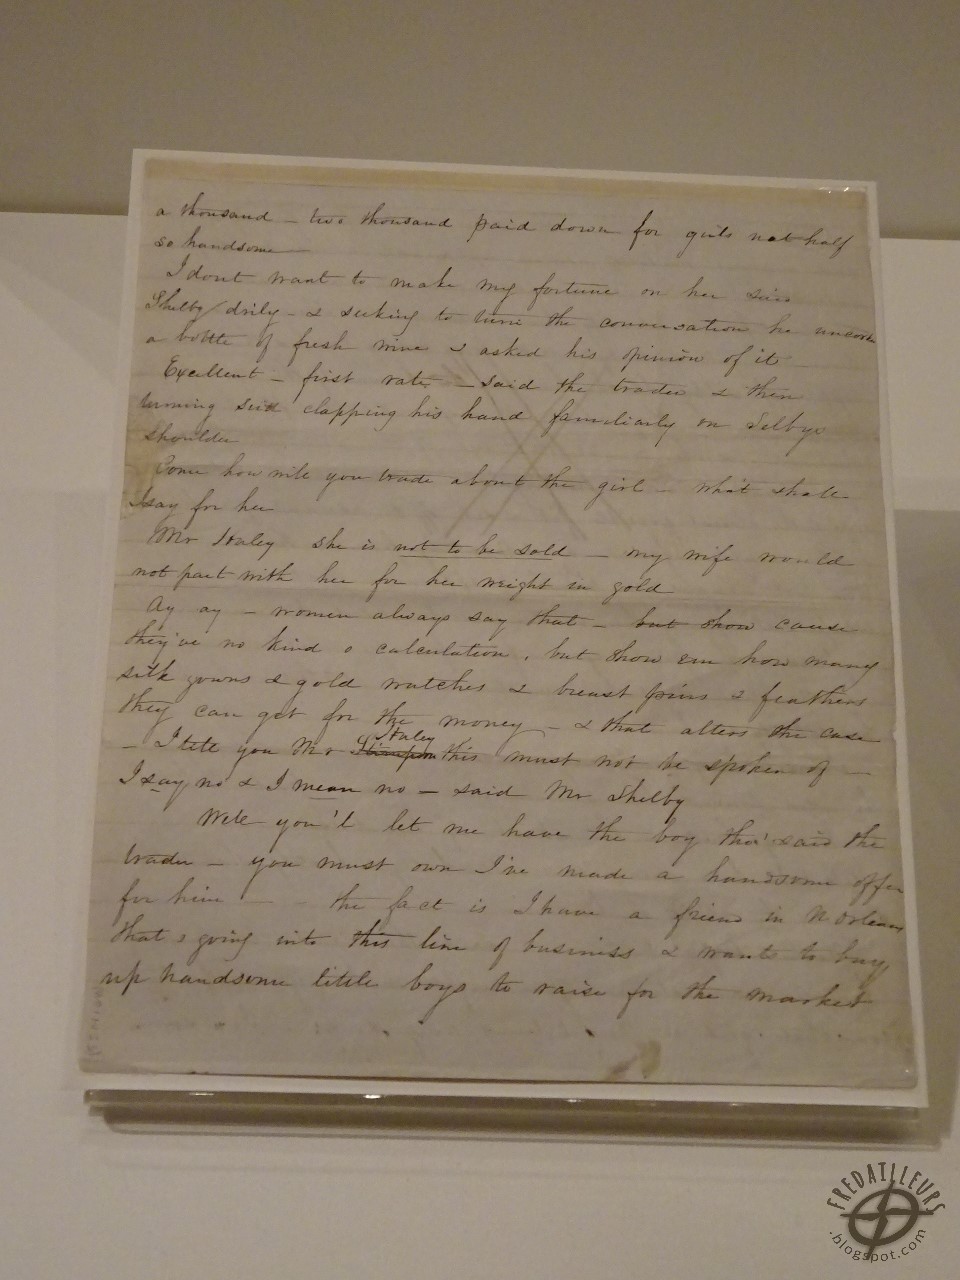 a thousand — two thousand paid down for girls not half
so handsome —
I dont want to make my fortune on her said
Shelby drily — & seeking to turn the conversation he uncorked
a bottle of fresh wine & asked his opinion of it —
Excellent — first rate — said the trader & then
turning said clapping his hand familiarly on Selbys
shoulder
Come how will you trade about the girl — what shall
I say for her
Mr Haley she is not to be sold — my wife would
not part with her for her weight in gold
Ay ay — women always say that — but show cause
they've no kind o calculation, but show em how many
silk gowns & gold watches & breast pins & feathers
they can get for the money — & that alters the case
Haley
— I tell you Mr Stimpson this must not be spoken of —
I say no & I mean no — said Mr Shelby
Well you'l let me have the boy tho' said the
trader — you must own I've made a handsome offer
for him — — the fact is I have a friend in N Orleans
that s going into this line of business & wants to buy
up handsome little boys to raise for the market
FREDAILLEURS
.blogspot.com